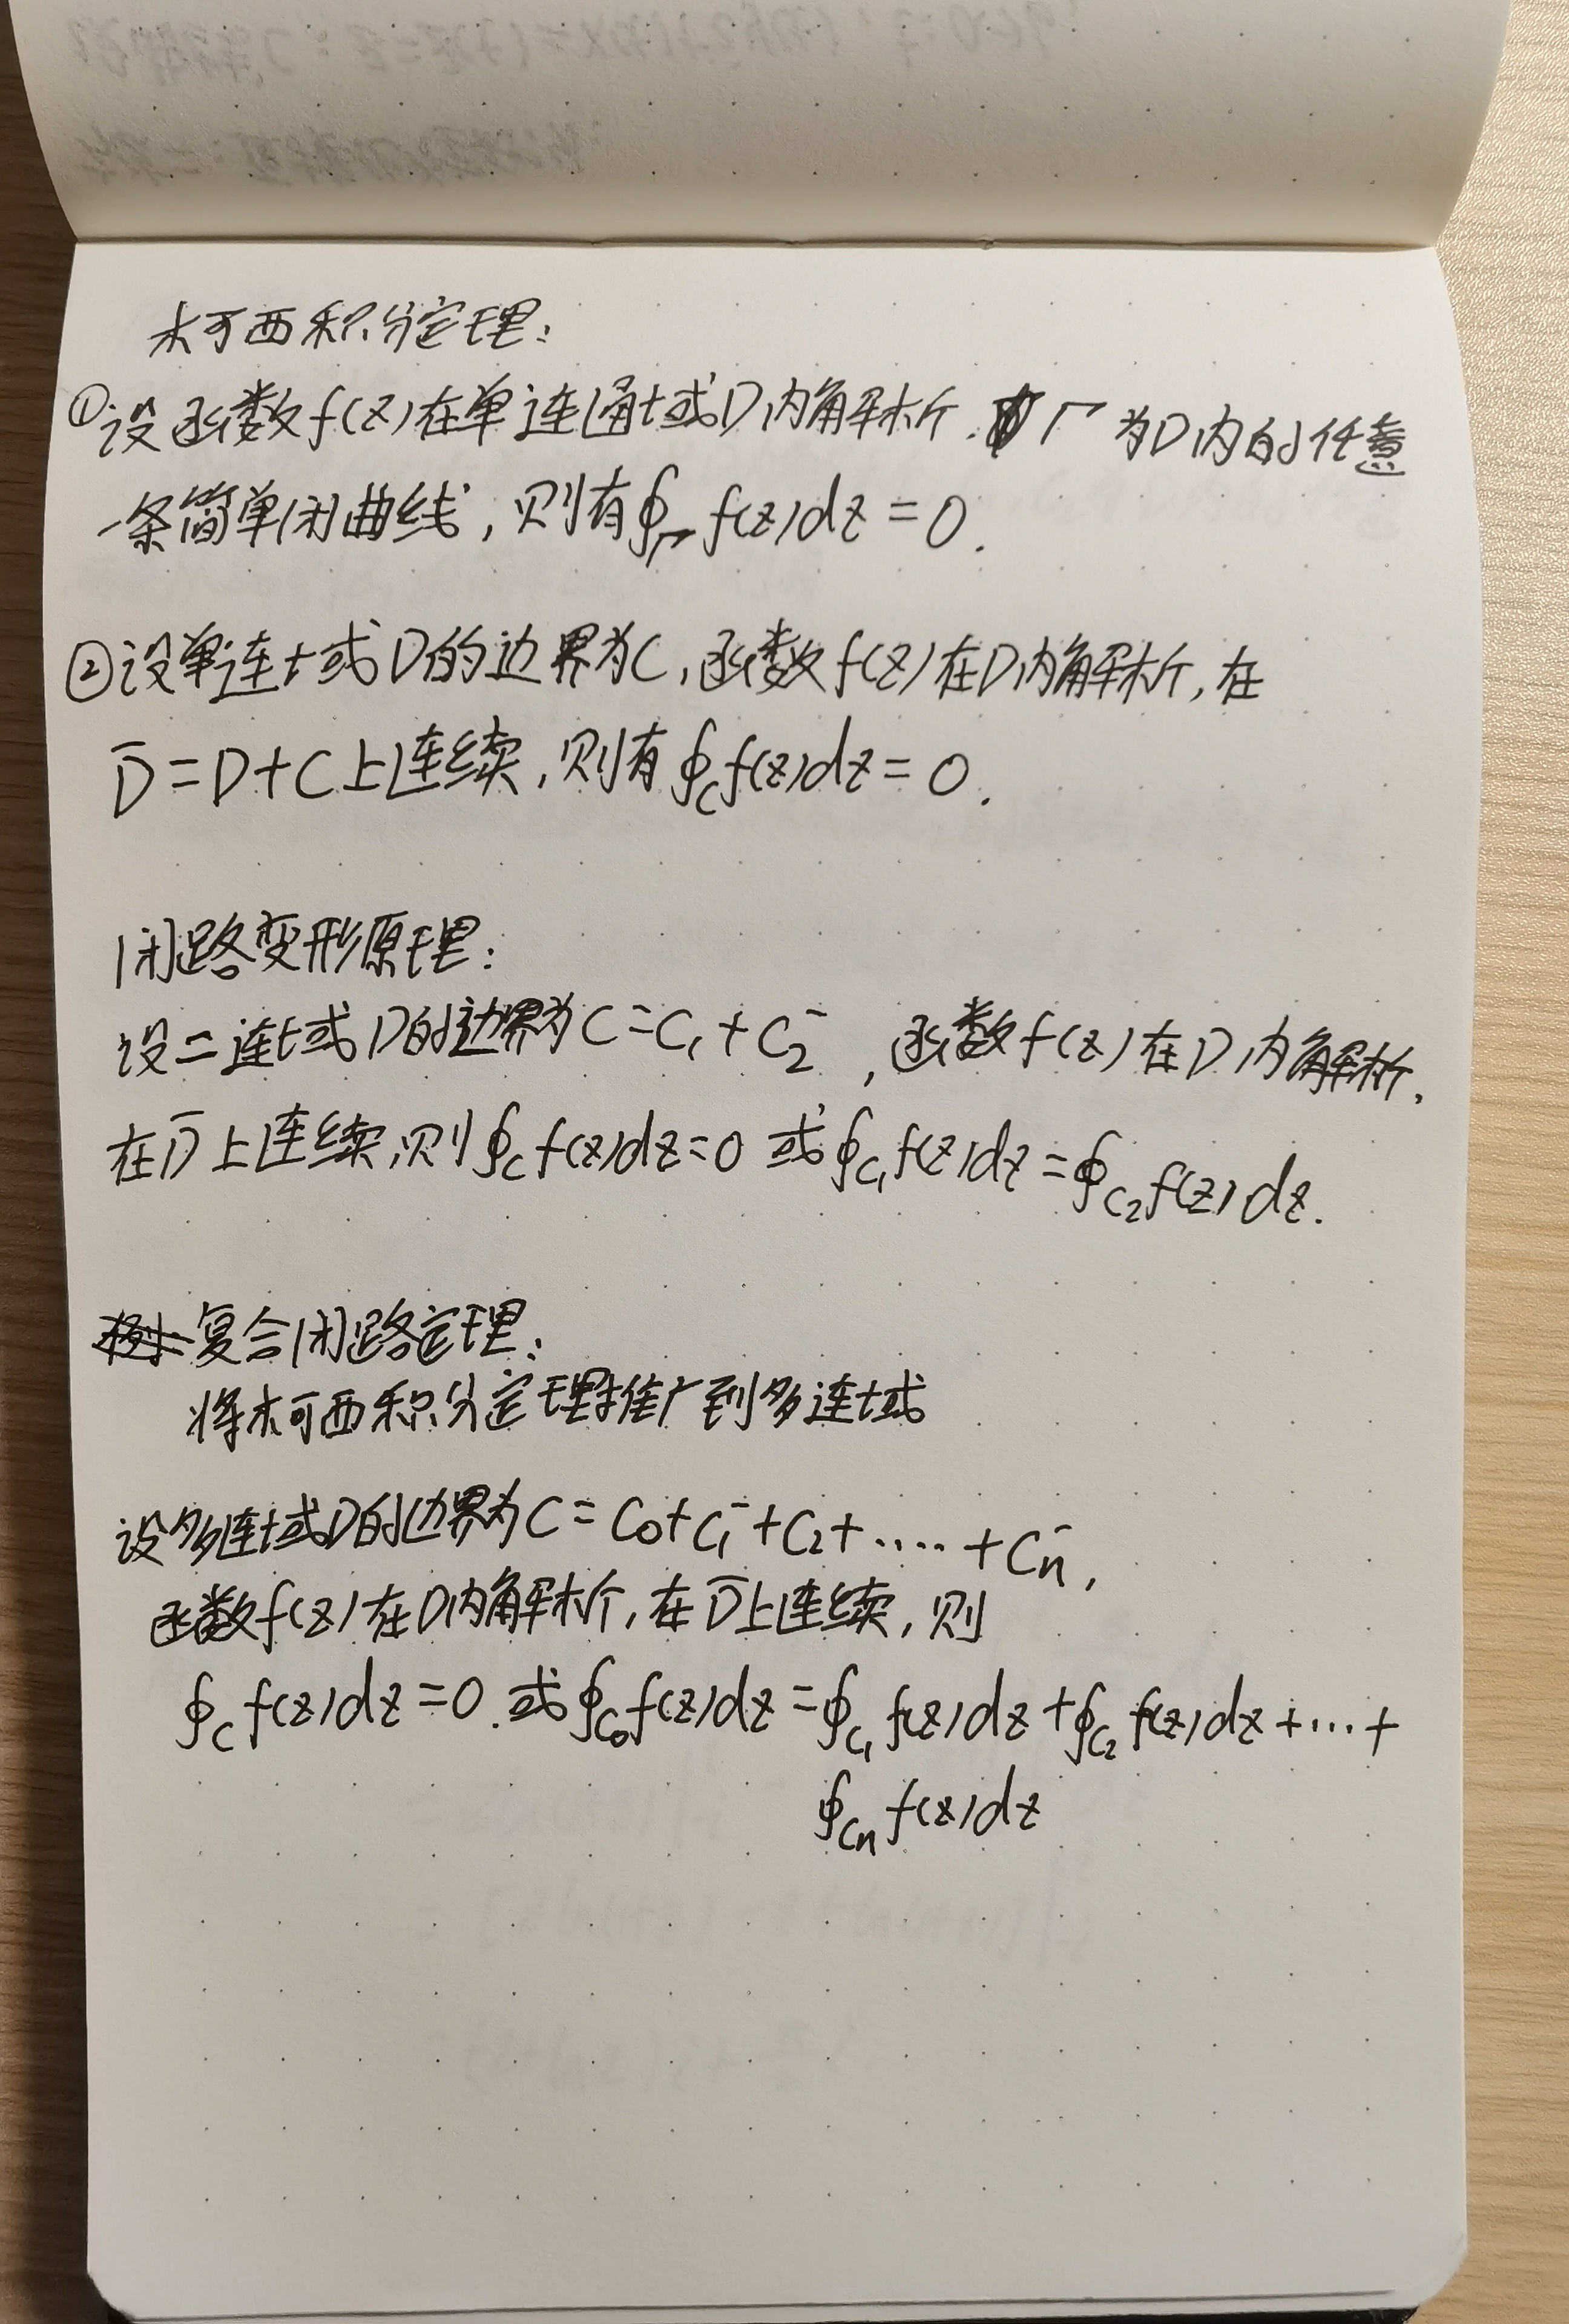 柯西积分定理:
①设函数f(z)在单连通域D内解析.Γ为D内的任意
一条简单闭曲线,则有∮_Γ f(z)dz=0.
②设单连域D的边界为C,函数f(z)在D内解析,在
D̄=D+C上连续,则有∮_C f(z)dz=0.
闭路变形原理:
设二连域D的边界为C=C₁+C₂⁻,函数f(z)在D内解析,
在D̄上连续,则∮_C f(z)dz=0 或∮_C₁ f(z)dz=∮_C₂ f(z)dz.
复合闭路定理:
将柯西积分定理推广到多连域
设多连域D的边界为C=C₀+C₁⁻+C₂+.....+Cₙ⁻,
函数f(z)在D内解析,在D̄上连续,则
∮_C f(z)dz=0.或∮_C₀ f(z)dz=∮_C₁ f(z)dz+∮_C₂ f(z)dz+...+
∮_Cₙ f(z)dz